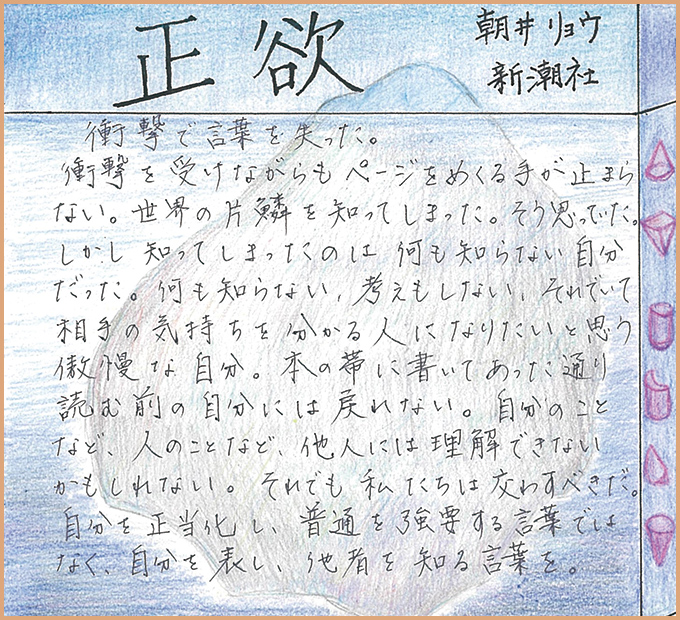 正欲
朝井リョウ
新潮社
衝撃で言葉を失った。
衝撃を受けながらもページをめくる手が止まら
ない。世界の片鱗を知ってしまった。そう思っていた。
しかし知ってしまったのは何も知らない自分
だった。何も知らない、考えもしない、それでいて
相手の気持ちを分かる人になりたいと思う
傲慢な自分。本の帯に書いてあった通り
読む前の自分には戻れない。自分のこと
など、人のことなど、他人には理解できない
かもしれない。それでも私たちは交わすべきだ。
自分を正当化し、普通を強要する言葉では
なく、自分を表し、他者を知る言葉を。